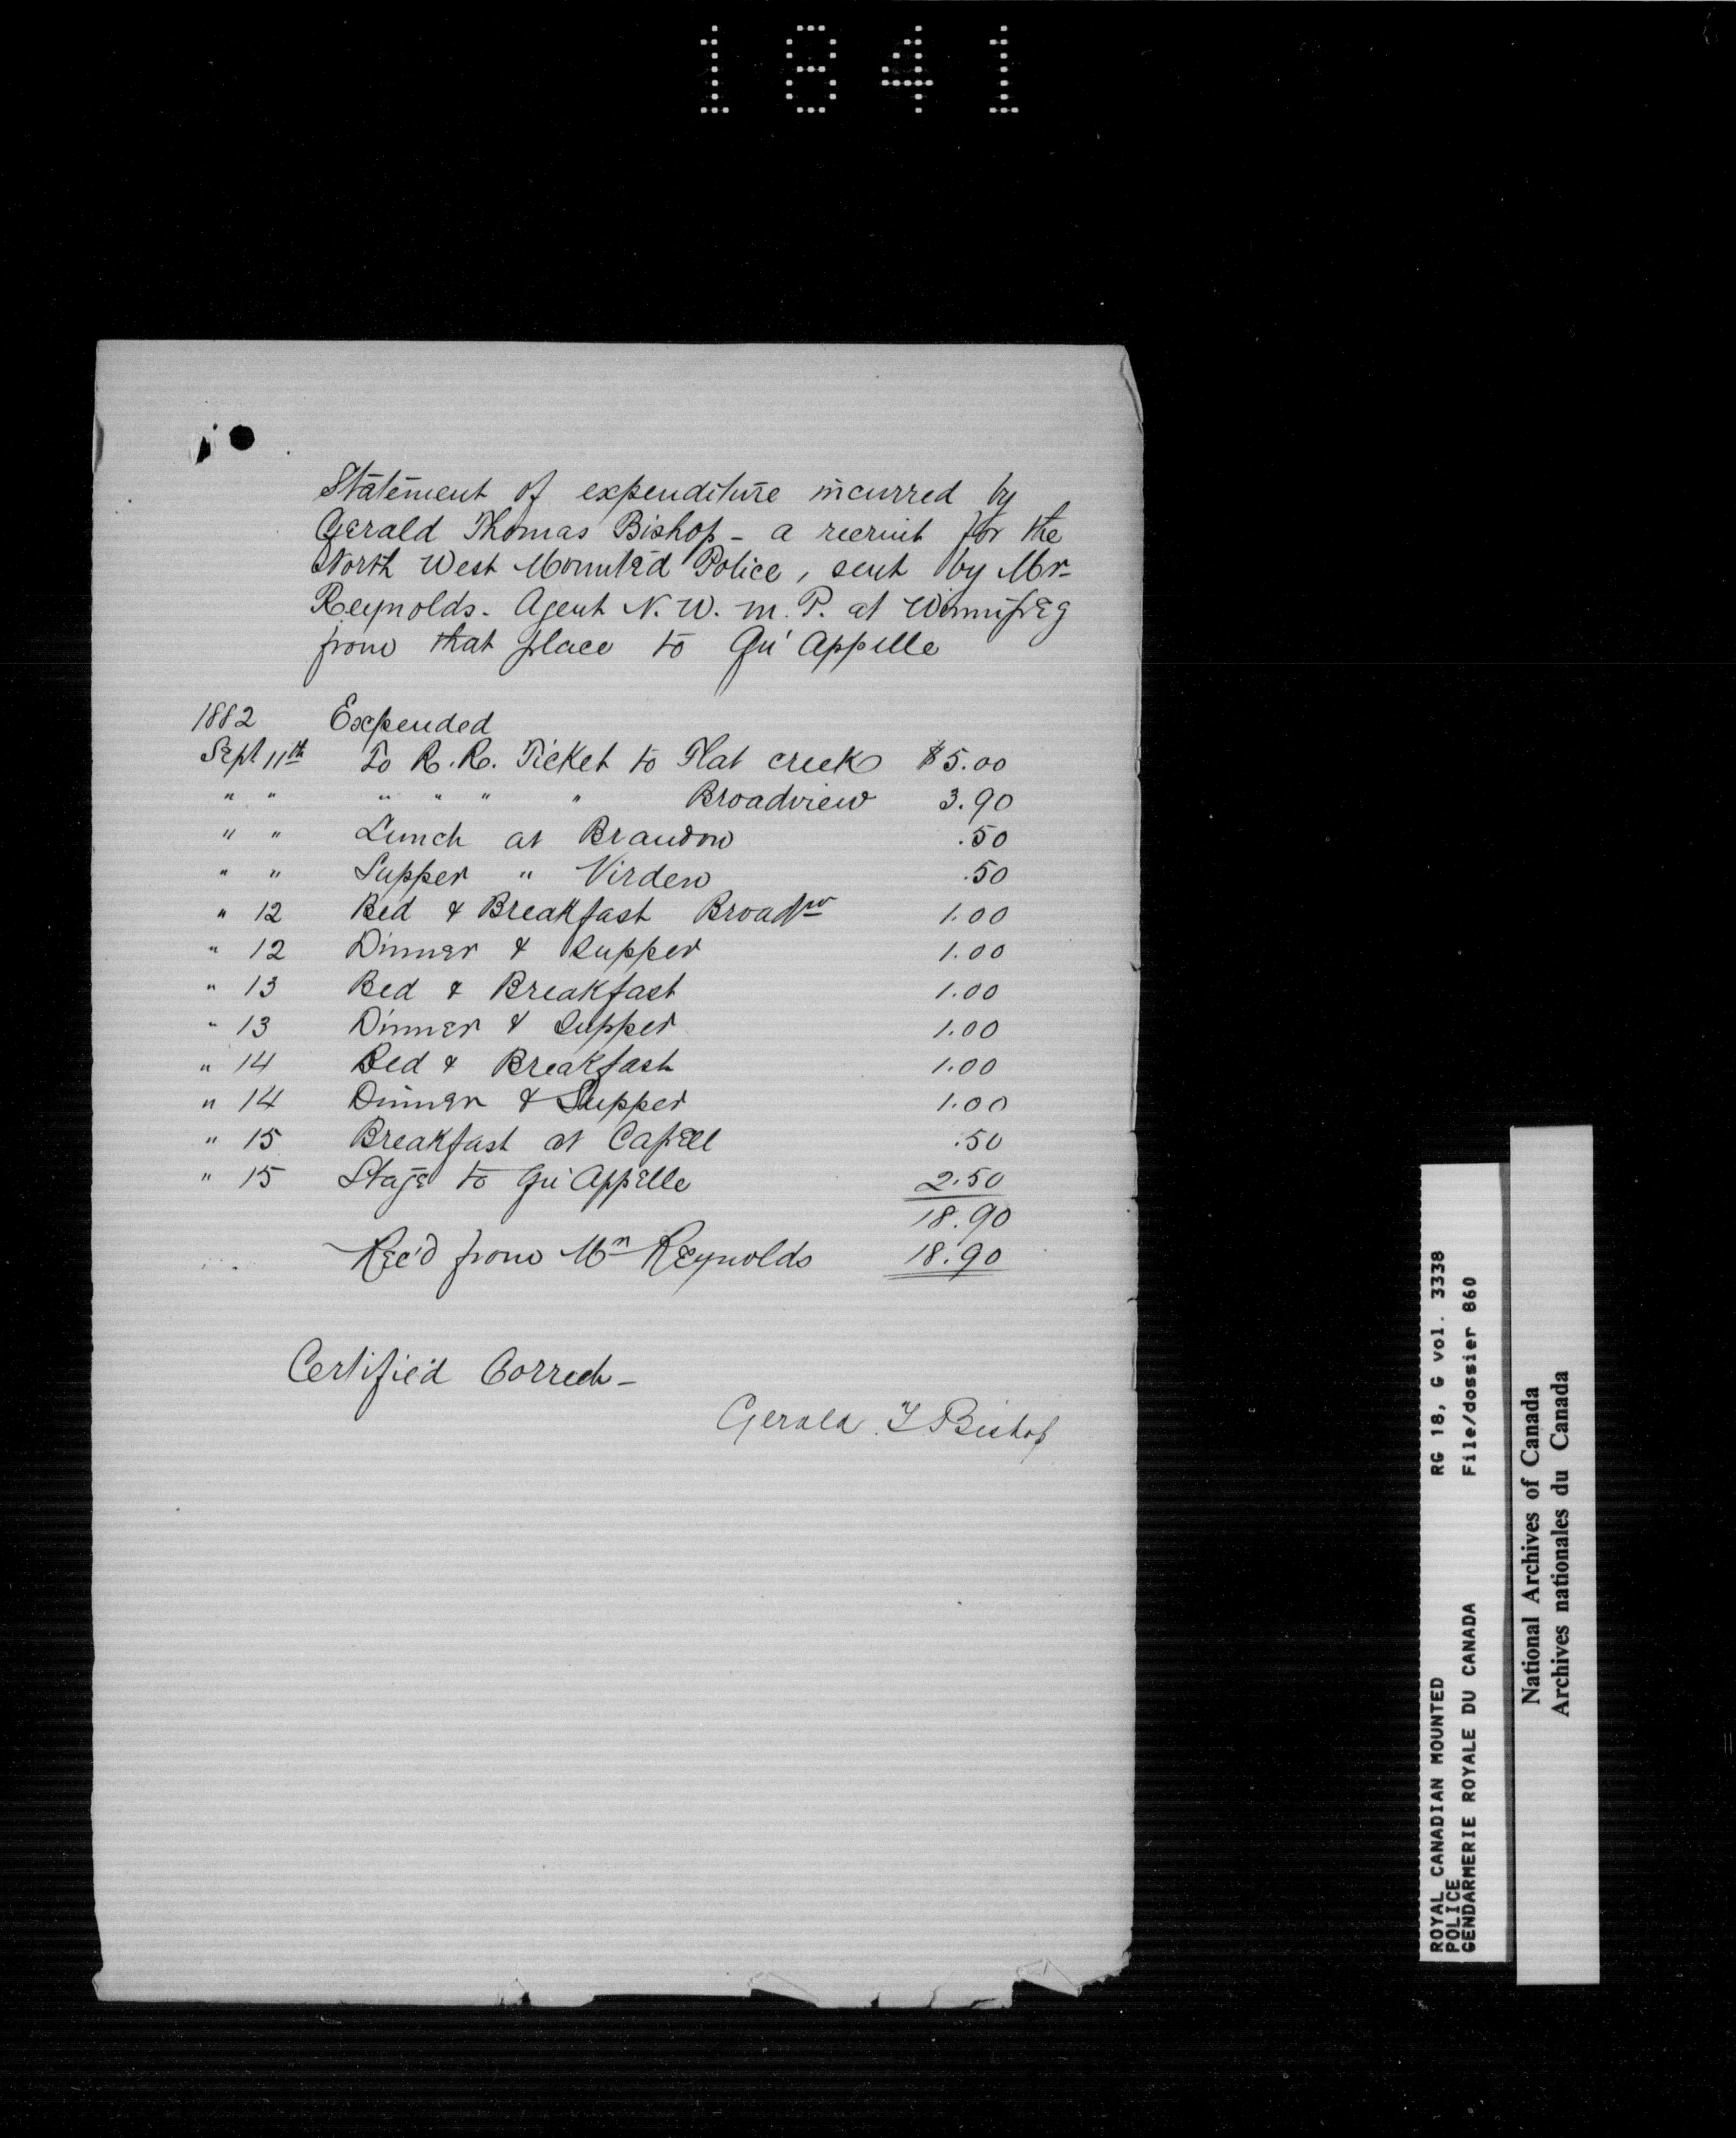 1841
Statement of expenditure incurred by
Gerald Thomas Bishop - a recruit for the
North West Mounted Police, sent by Mr-
Reynolds. Agent N. W. M. P. at Winnipeg
from that place to Qu'Appelle
1882 Expended
Sept 11th To R. R. Ticket to Flat creek $5.00
" " " " " " Broadview 3.90
" " Lunch at Brandon .50
" " Supper " Virden .50
" 12 Bed & Breakfast Broadvw 1.00
" 12 Dinner & Supper 1.00
" 13 Bed & Breakfast 1.00
" 13 Dinner & Supper 1.00
" 14 Bed & Breakfast 1.00
" 14 Dinner & Supper 1.00
" 15 Breakfast at Capell .50
" 15 Stage to Qu'Appelle 2.50
18.90
Rec'd from Mr Reynolds 18.90
Certified Correct-
Gerald T Bishop
ROYAL CANADIAN MOUNTED RG 18, G vol. 3338
POLICE File/dossier 860
GENDARMERIE ROYALE DU CANADA
National Archives of Canada
Archives nationales du Canada